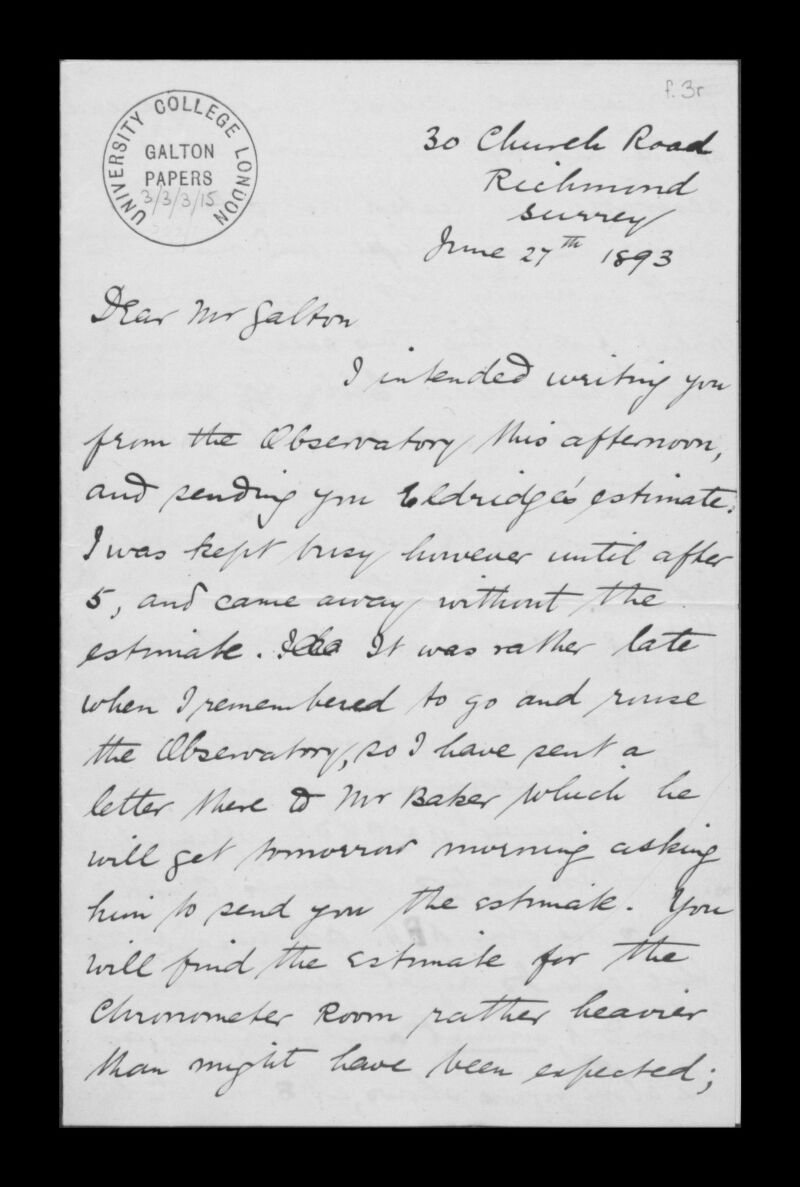 f. 3r
UNIVERSITY COLLEGE LONDON
GALTON
PAPERS
3/3/3/15
30 Church Road
Richmond
Surrey
June 27th 1893
Dear Mr Galton
I intended writing you
from the Observatory this afternoon,
and sending you Eldridge's estimate.
I was kept busy however until after
5, and came away without the
estimate. It was rather late
when I remembered to go and rouse
the Observatory, so I have sent a
letter there to Mr Baker which he
will get tomorrow morning asking
him to send you the estimate. You
will find the estimate for the
Chronometer Room rather heavier
than might have been expected;